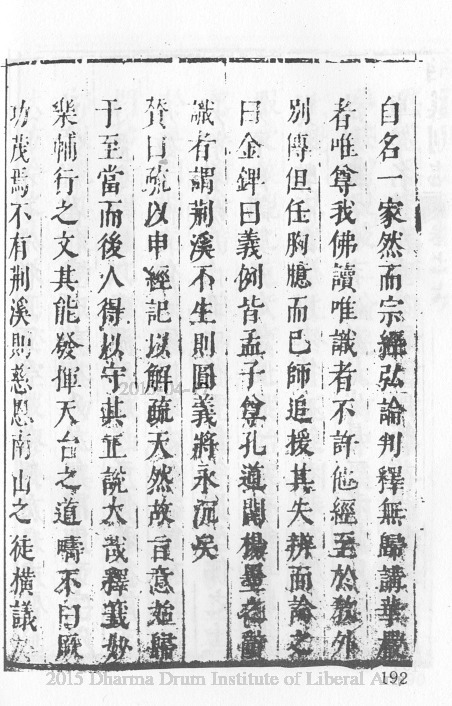 自名一家然而宗經弘論判釋無歸講華嚴
者唯尊我佛讀唯識者不許他經至於教外
別傳但任胸臆而已師追援其失辨而論之
曰金錍曰義例皆孟子尊孔道闢楊墨
識者謂荊溪不生則圓義將永沉矣
贊曰疏以申經記以解疏夫然故言意始歸
于至當而後人得以守其正說大哉釋籤妙
樂輔行之文其能發揮天台之道疇不曰厥
功茂焉不有荊溪則慈恩南山之徒橫議於
192
2015 Dharma Drum Institute of Liberal Arts